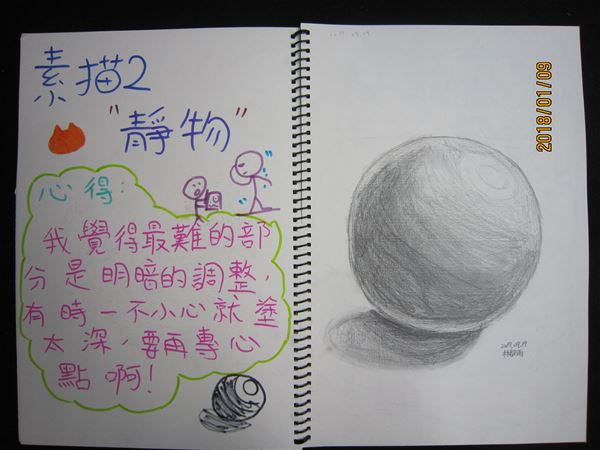 素描2
"靜物"
心得:
我覺得最難的部
分是明暗的調整,
有時一不小心就塗
太深,要再專心
點啊!
2017.09.19
2018/01/09
2017.09.19